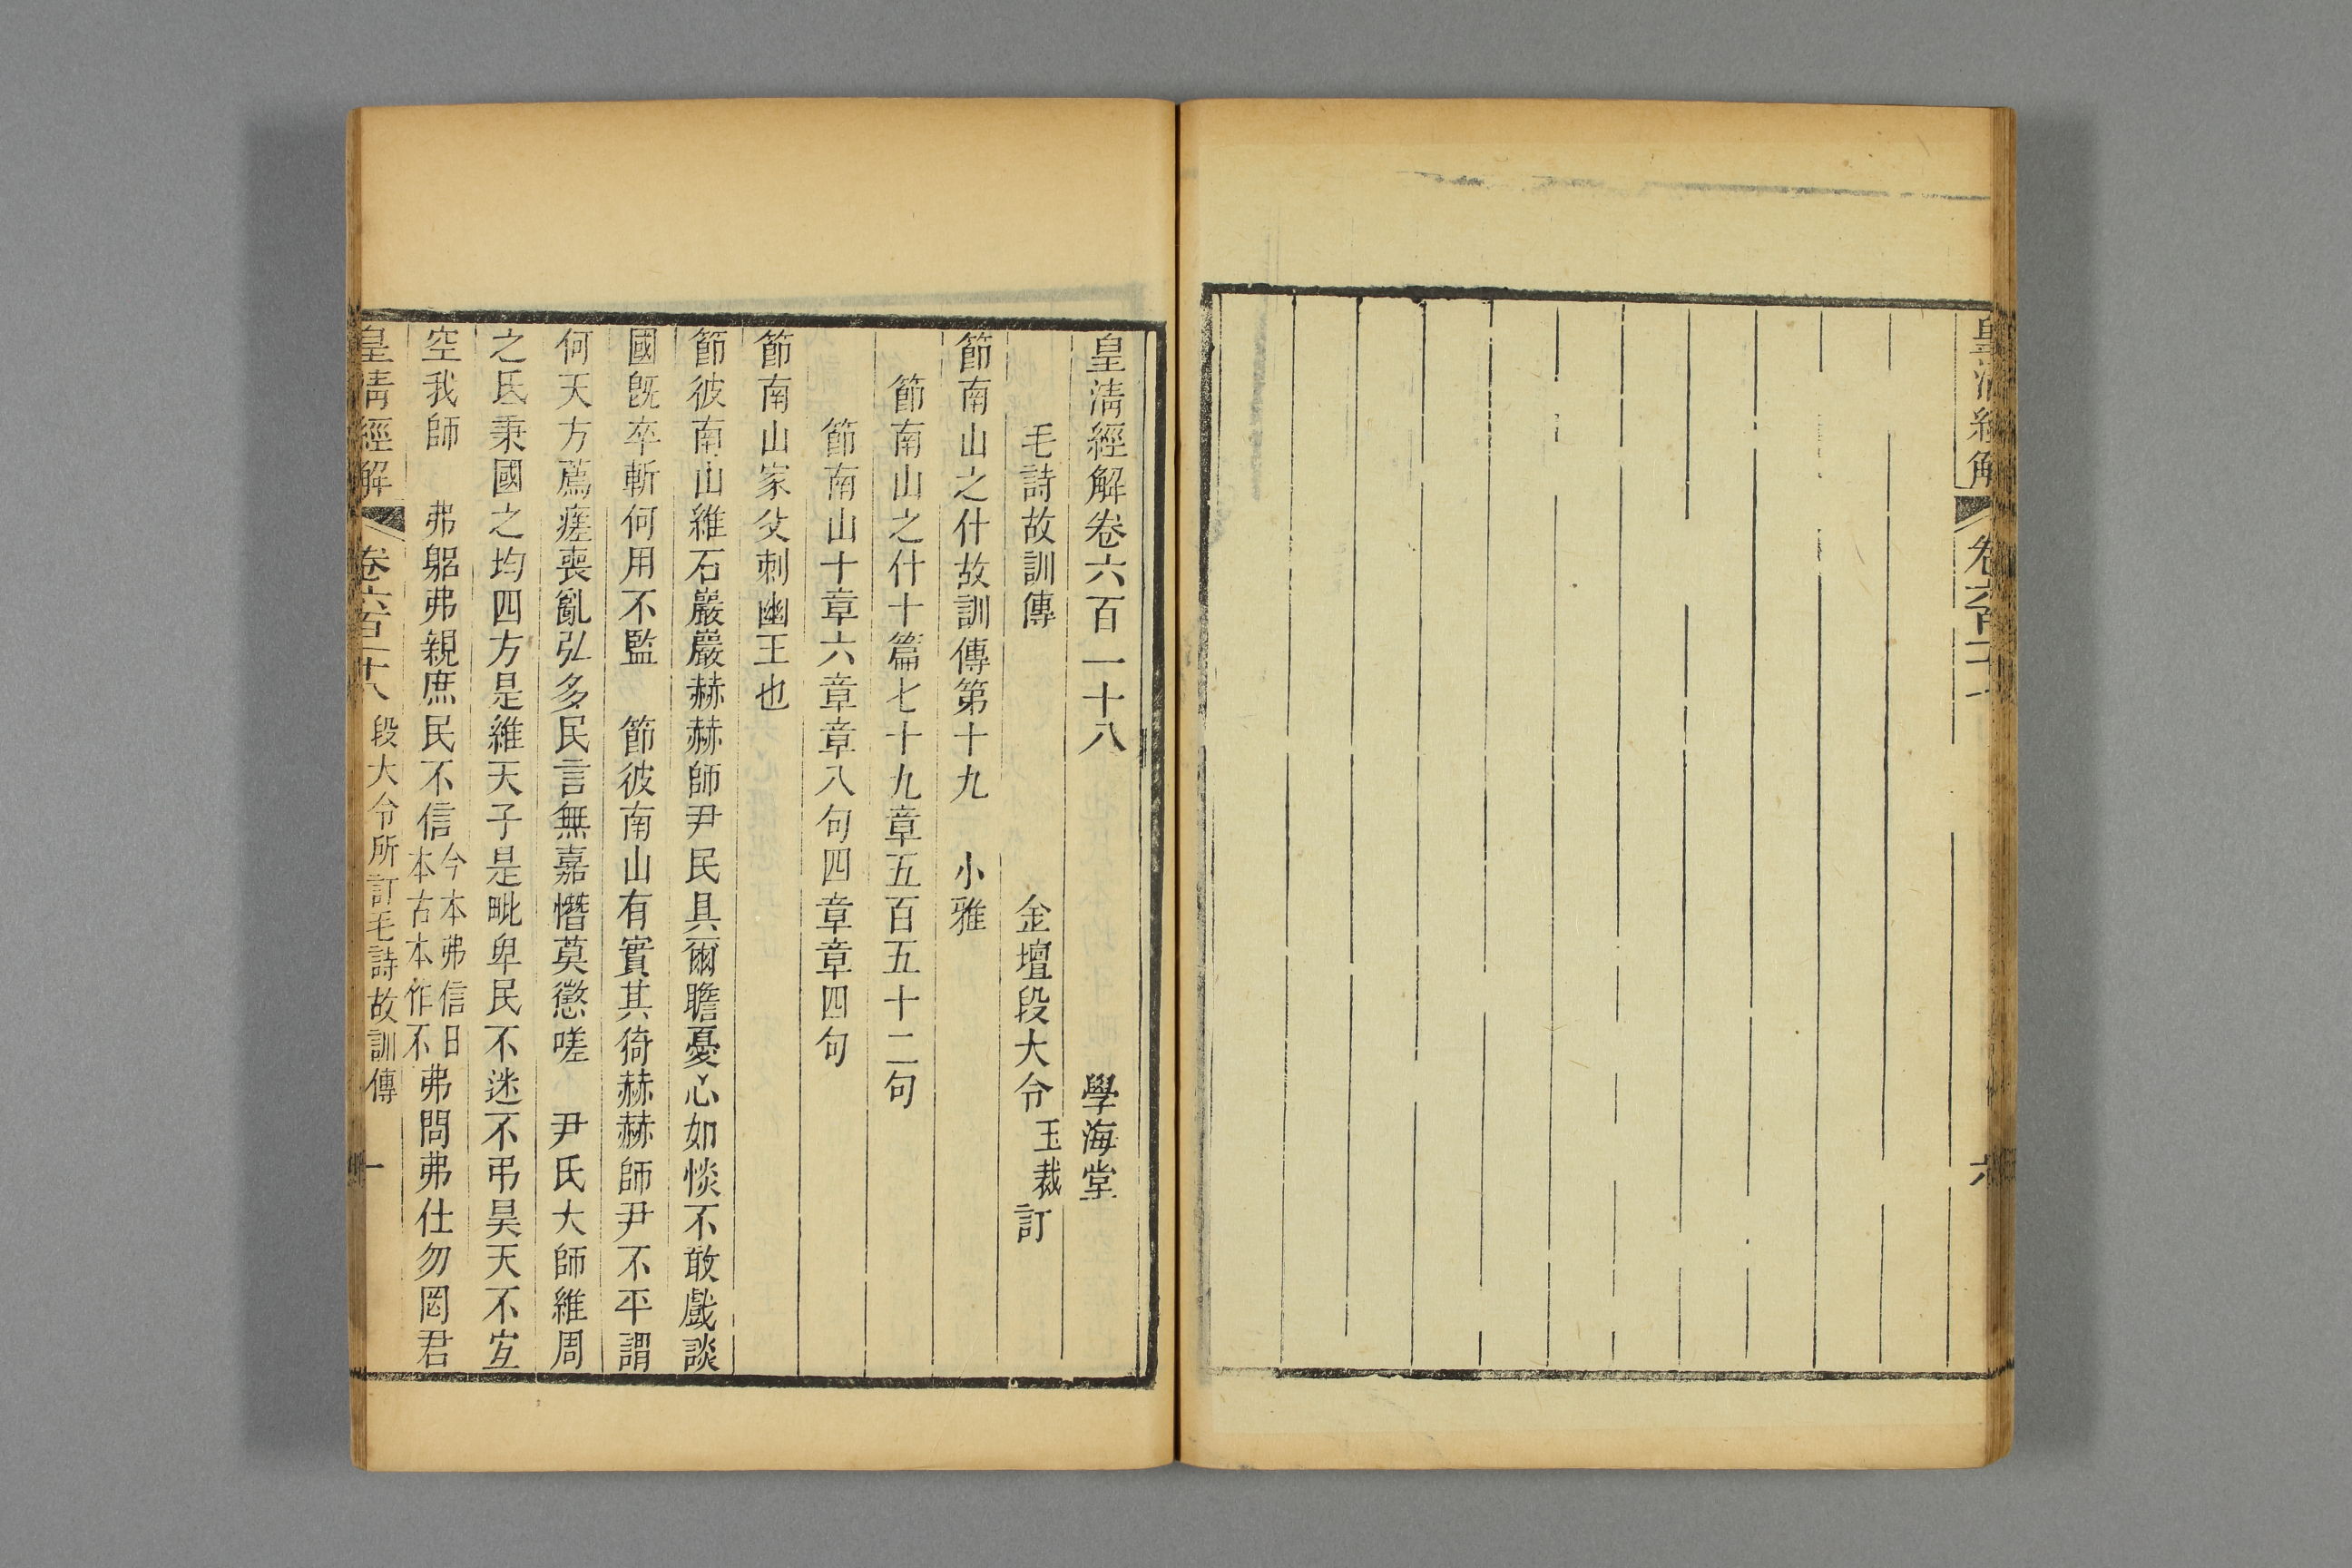 皇清經解
卷六百一十七
六
皇清經解卷六百一十八 學海堂
毛詩故訓傳 金壇段大令玉裁訂
節南山之什故訓傳第十九 小雅
節南山之什十篇七十九章五百五十二句
節南山十章六章章八句四章章四句
節南山家父刺幽王也
節彼南山維石巖巖赫赫師尹民具爾瞻憂心如惔不敢戲談
國旣卒斬何用不監 節彼南山有實其猗赫赫師尹不平謂
何天方薦瘥喪亂弘多民言無嘉憯莫懲嗟 尹氏大師維周
之氐秉國之均四方是維天子是毗卑民不迷不弔昊天不宐
空我師 弗躳弗親庶民不信今本弗信日本古本作不弗問弗仕勿罔君
皇清經解
卷六百一十八 段大令所訂毛詩故訓傳
一